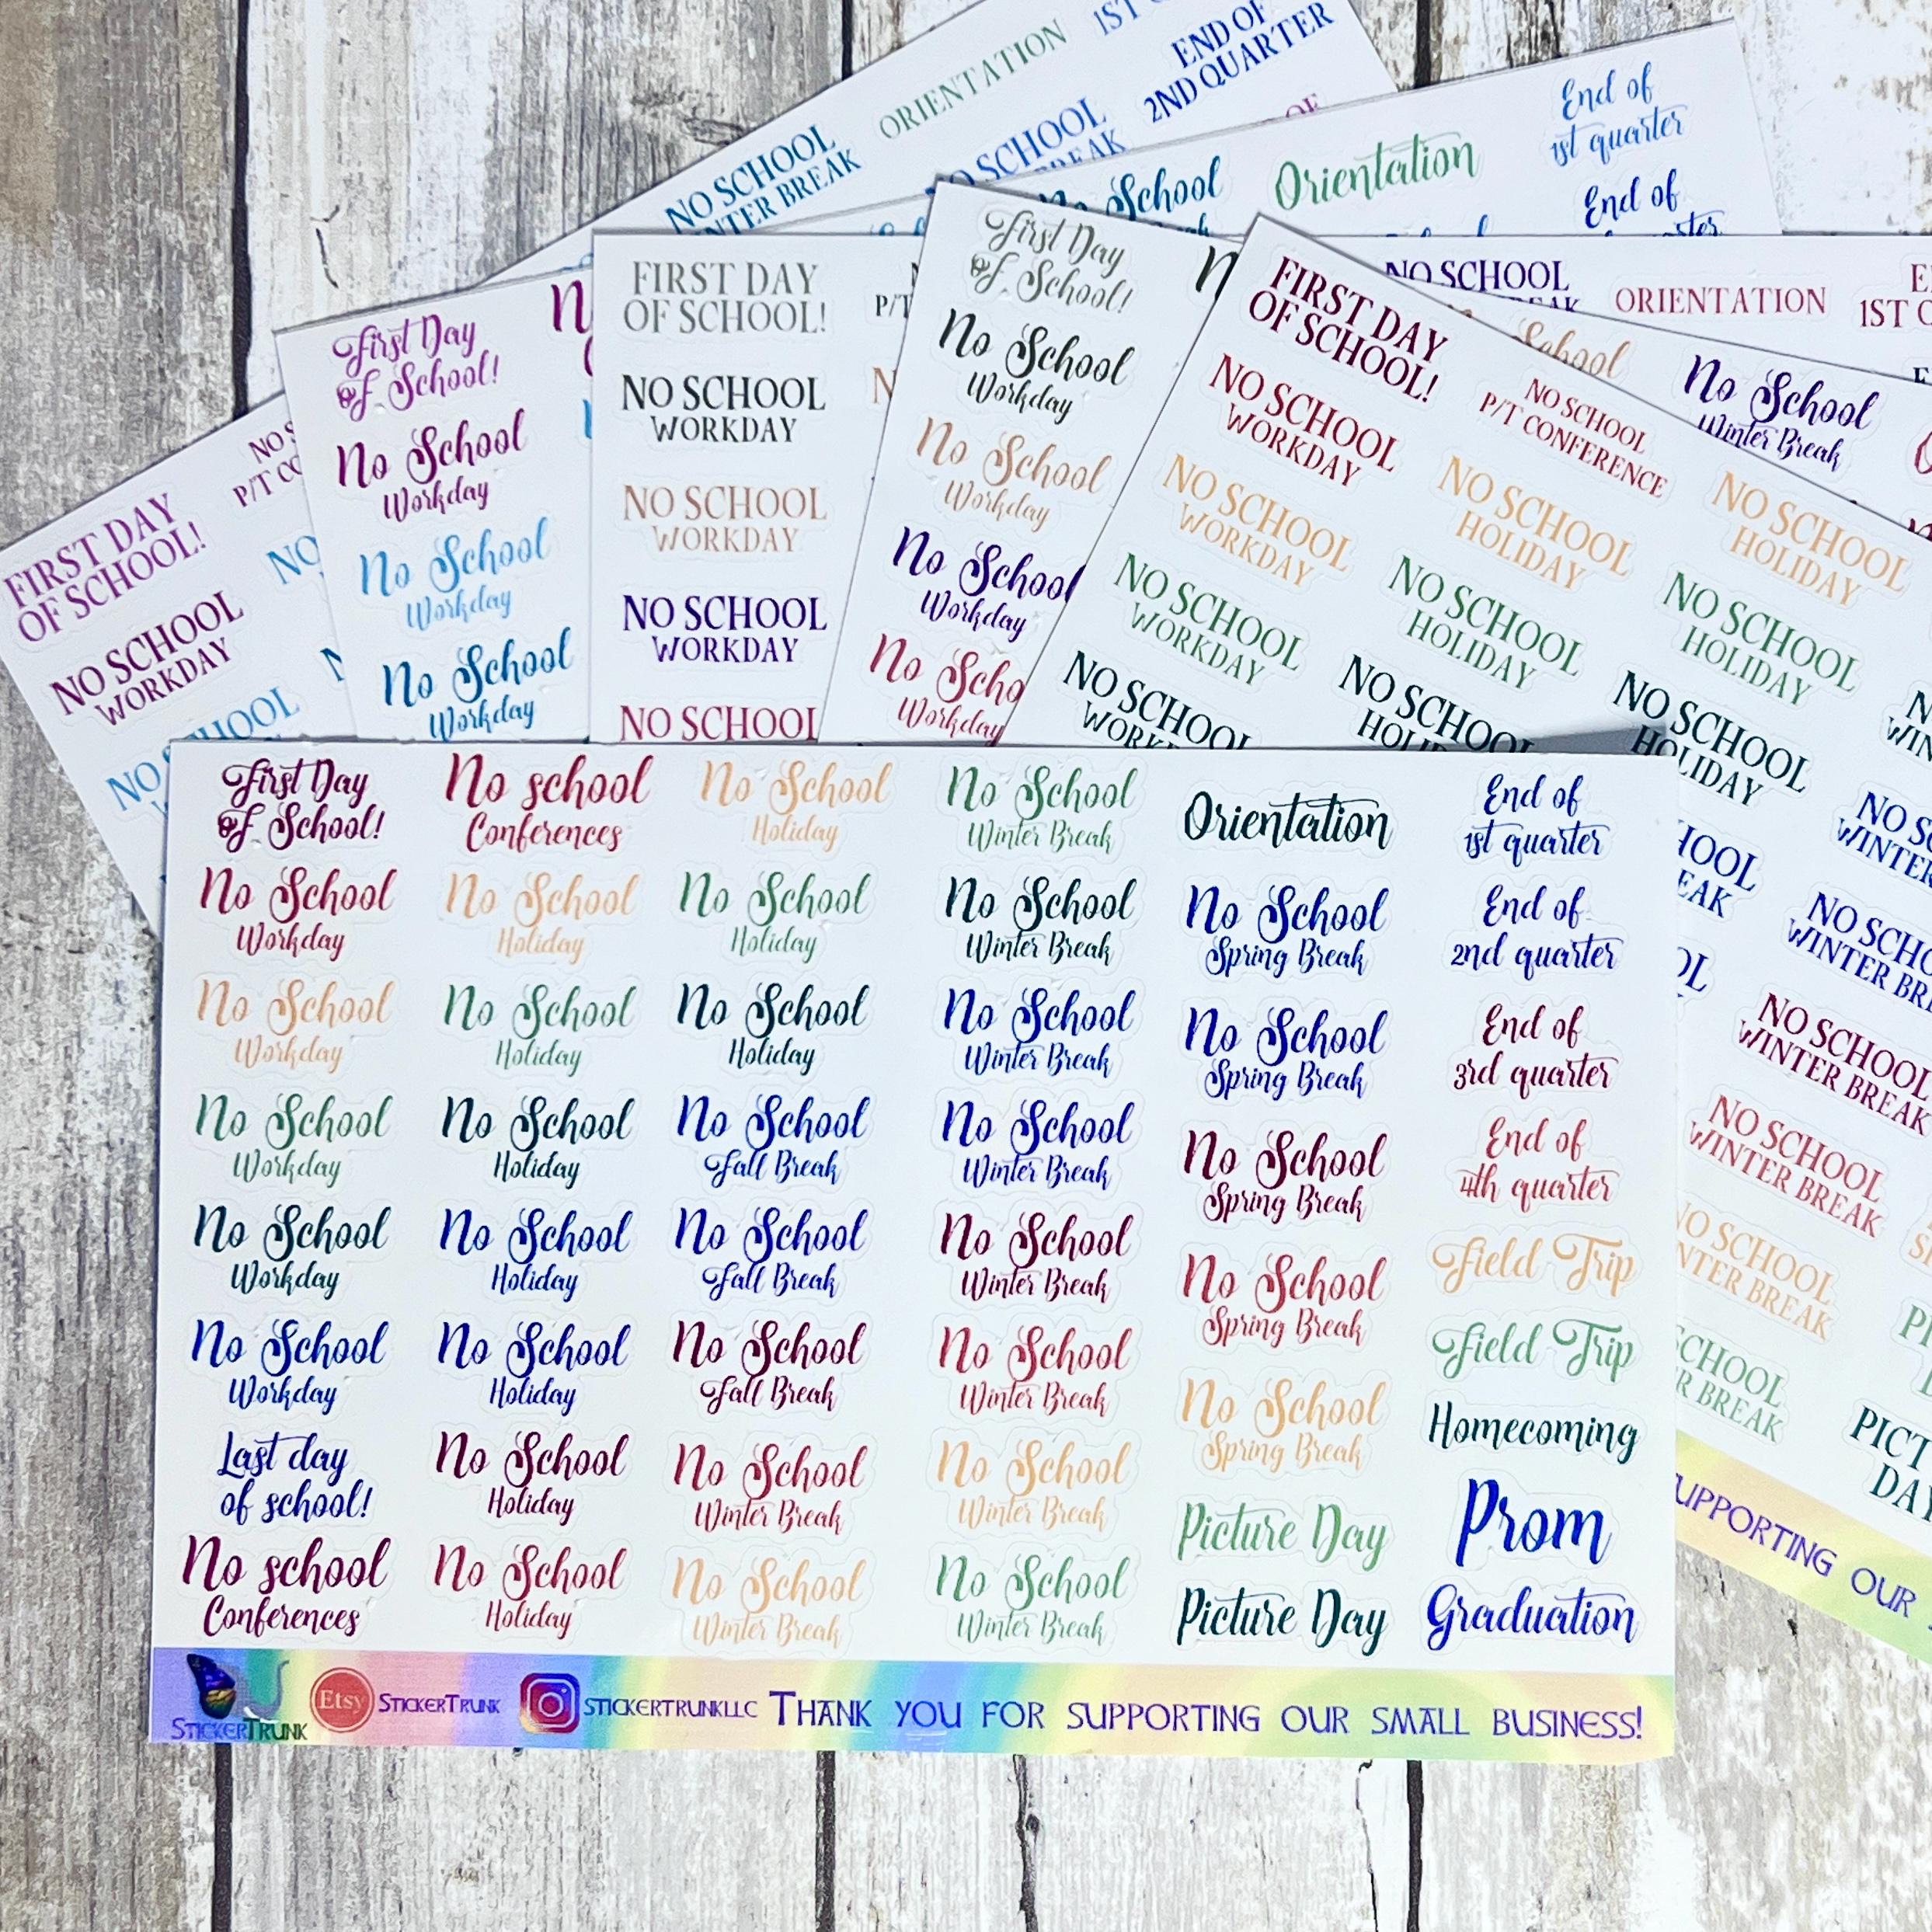 ORIENTATION
1ST
END OF
2ND QUARTER
NO SCHOOL
WINTER BREAK
NO SCHOOL
BREAK
No School
Orientation
End of
1st quarter
End of
FIRST DAY
OF SCHOOL!
NO SCHOOL
WORKDAY
P/T
First Day
of School!
No School
Workday
No School
Workday
No School
Workday
FIRST DAY
OF SCHOOL!
P/T
NO SCHOOL
WORKDAY
NO SCHOOL
WORKDAY
NO SCHOOL
WORKDAY
NO SCHOOL
First Day
of School!
No School
Workday
No School
Workday
No School
Workday
No
Workday
NO SCHOOL
ORIENTATION
1ST
School
No School
Winter Break
FIRST DAY
OF SCHOOL!
NO SCHOOL
P/T CONFERENCE
NO SCHOOL
WORKDAY
NO SCHOOL
WORKDAY
NO SCHOOL
HOLIDAY
NO SCHOOL
HOLIDAY
NO SCHOOL
WORKDAY
NO SCHOOL
HOLIDAY
NO SCHOOL
HOLIDAY
NO SCHOOL
NO SCHOOL
NO SCHOOL
HOLIDAY
WINTER
NO SCHOOL
WINTER BREAK
NO SCHOOL
WINTER BREAK
NO SCHOOL
WINTER BREAK
NO SCHOOL
WINTER BREAK
SCHOOL
BREAK
DAY
SUPPORTING OUR
First Day
of School!
No School
Workday
No School
Workday
No School
Workday
No School
Workday
No School
Workday
Last day
of school!
No school
Conferences
No school
Conferences
No School
Holiday
No School
Holiday
No School
Holiday
No School
Holiday
No School
Holiday
No School
Holiday
No School
Holiday
No School
Holiday
No School
Holiday
No School
Holiday
No School
Fall Break
No School
Fall Break
No School
Fall Break
No School
Winter Break
No School
Winter Break
No School
Winter Break
No School
Winter Break
No School
Winter Break
No School
Winter Break
No School
Winter Break
No School
Winter Break
No School
Winter Break
No School
Winter Break
Orientation
No School
Spring Break
No School
Spring Break
No School
Spring Break
No School
Spring Break
No School
Spring Break
Picture Day
Picture Day
End of
1st quarter
End of
2nd quarter
End of
3rd quarter
End of
4th quarter
Field Trip
Field Trip
Homecoming
Prom
Graduation
StickerTrunk
Etsy StickerTrunk stickertrunkllc Thank you for supporting our small business!